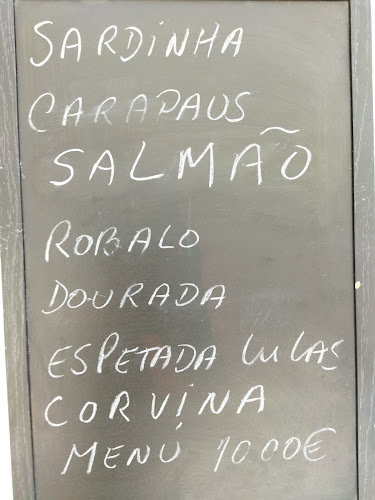 SARDINHA
CARAPAUS
SALMÃO
ROBALO
DOURADA
ESPETADA LULAS
CORVINA
MENÚ 10.00€